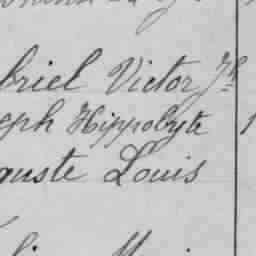 briel Victor Jh
eph Hippolyte
guste Louis